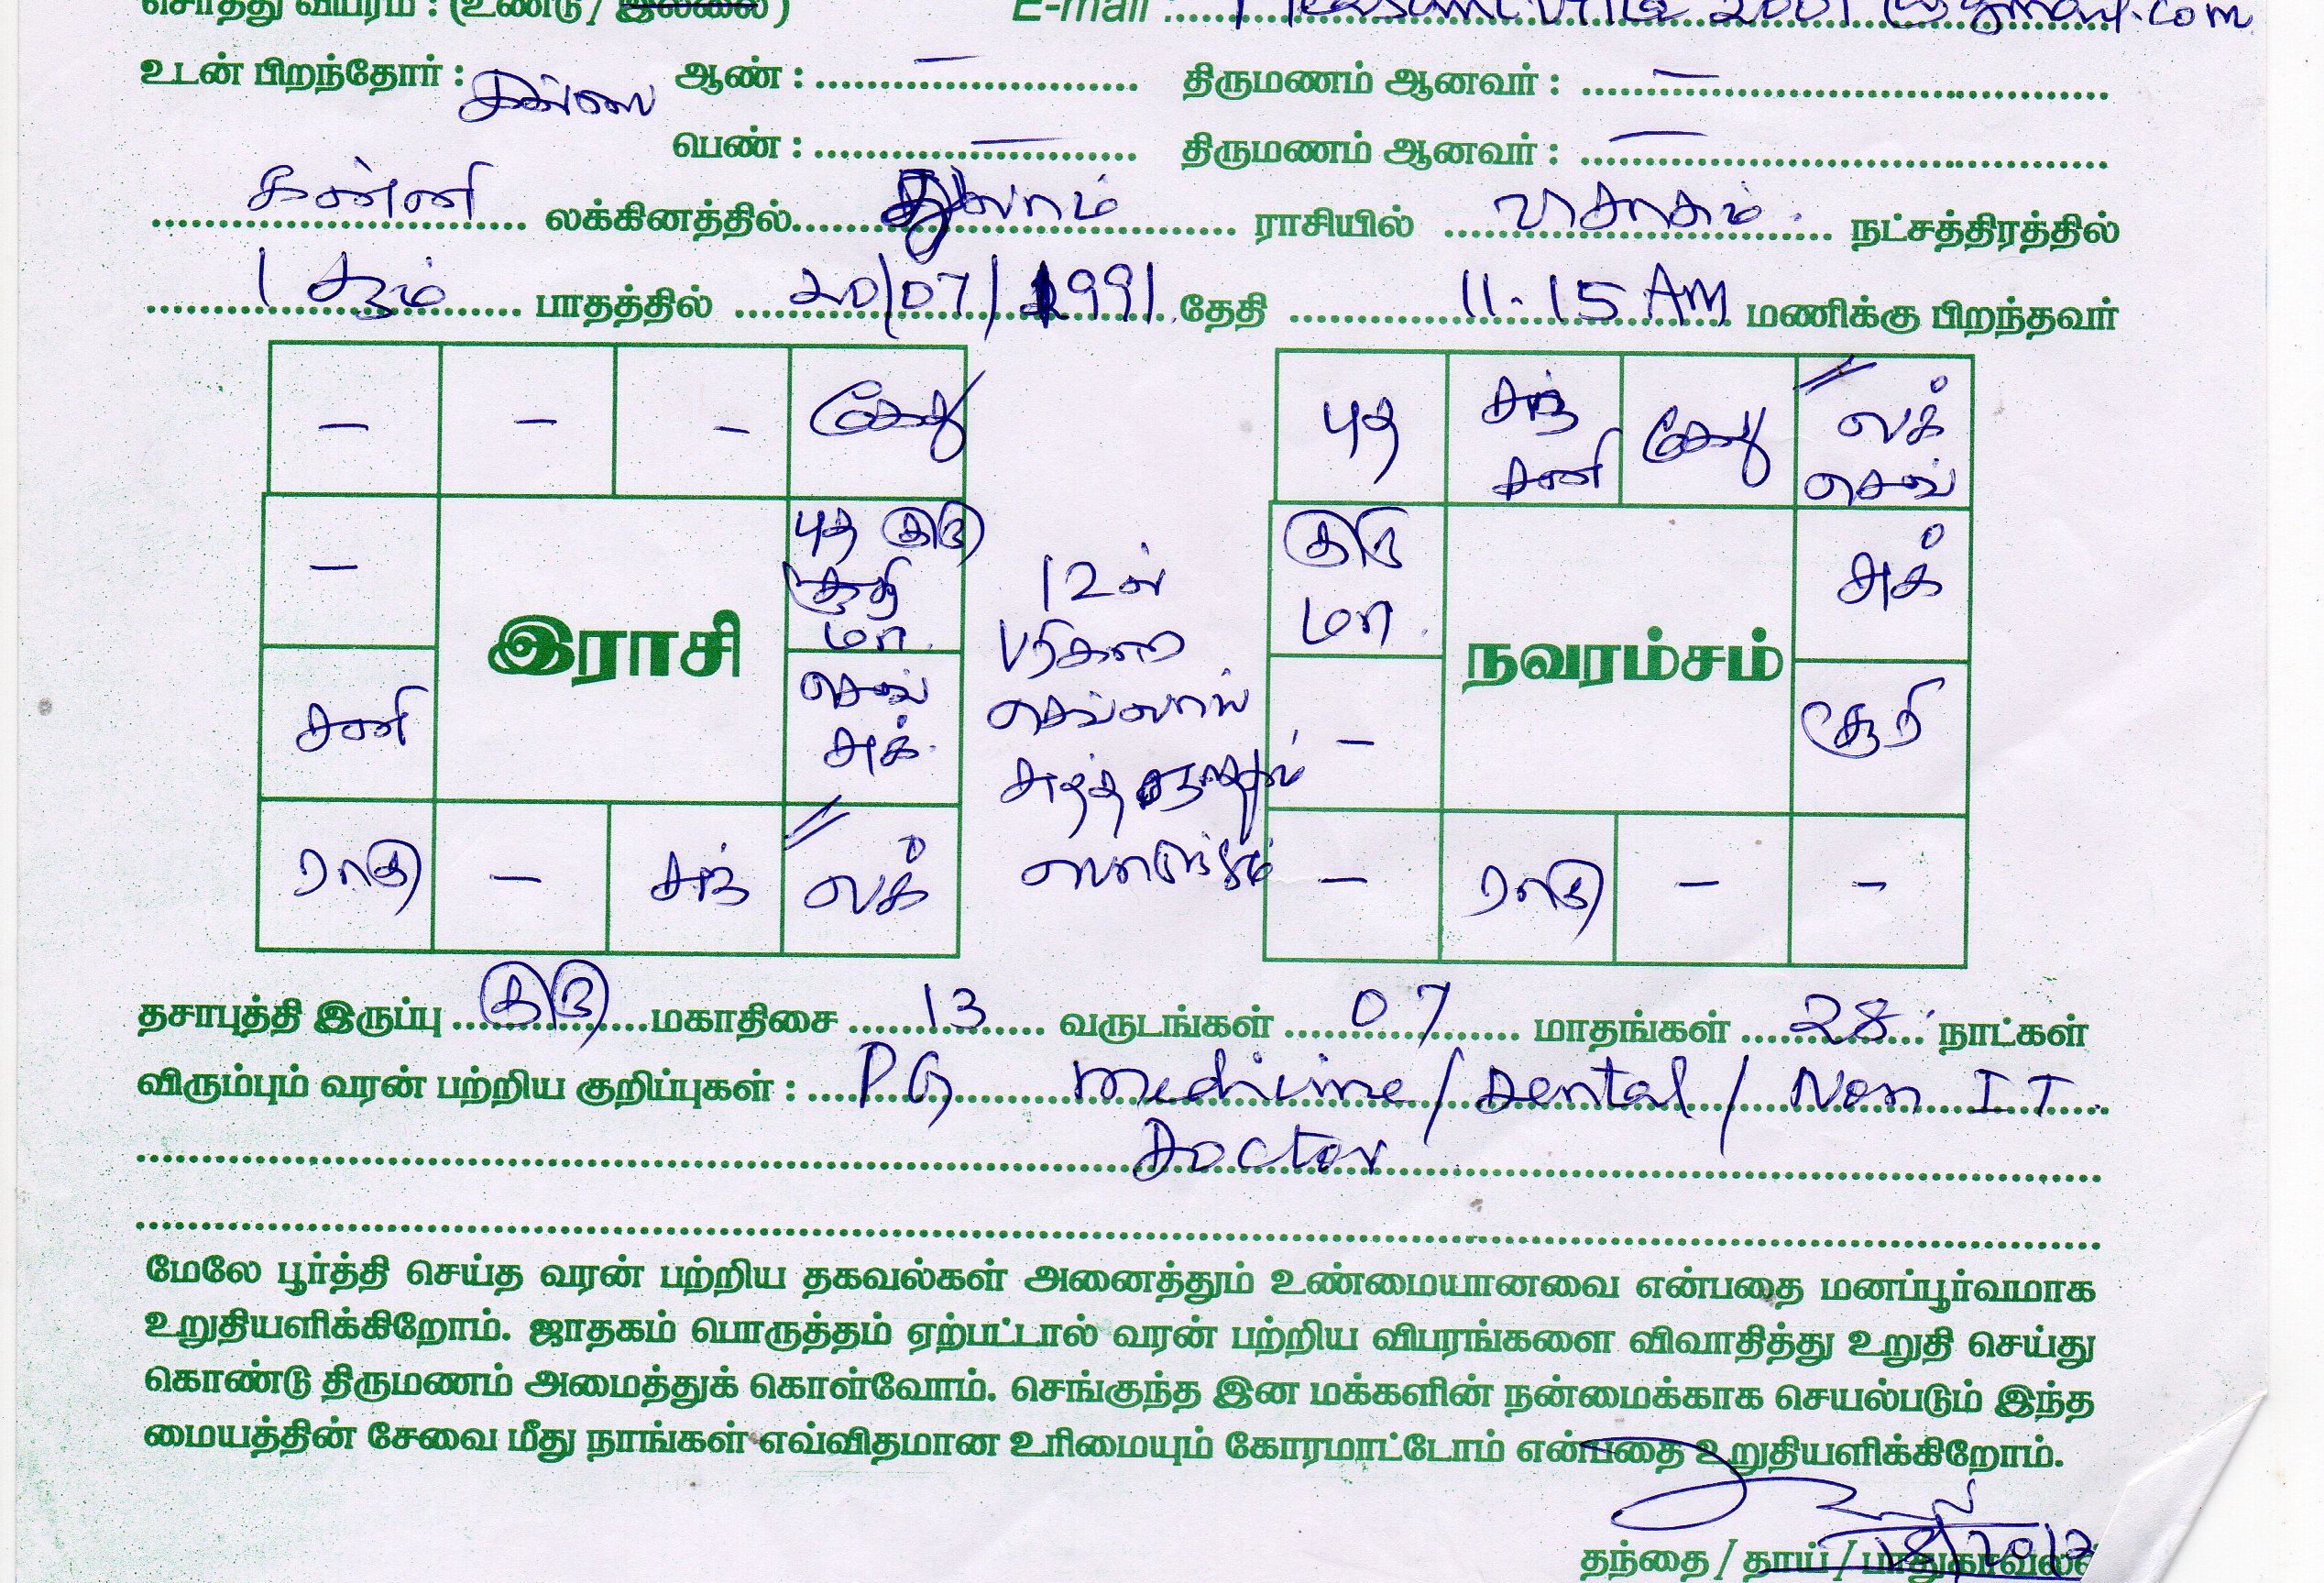 சொத்து விபரம் : (உண்டு / இல்லை) E-mail : 2001@gmail.com
உடன் பிறந்தோர் : ஆண் : – திருமணம் ஆனவர் : –
பெண் : – திருமணம் ஆனவர் : –
கன்னி லக்கினத்தில் துலாம் ராசியில் விசாகம் நட்சத்திரத்தில்
1 ஆம் பாதத்தில் 20/07/1991 தேதி 11.15 AM மணிக்கு பிறந்தவர்
– – – கேது
– புத குரு சூரி மா
சனி செவ் சுக்
ராகு – சந் லக்
இராசி
12ல்
பரிகார
செவ்வாய்
புத சந் சனி கேது லக் செவ்
குரு மா சுக்
– சூரி
– ராகு – –
நவரம்சம்
தசாபுத்தி இருப்பு குரு மகாதிசை 13 வருடங்கள் 07 மாதங்கள் 28 நாட்கள்
விரும்பும் வரன் பற்றிய குறிப்புகள் : PG medicine / Dental / Non I T
Doctor
மேலே பூர்த்தி செய்த வரன் பற்றிய தகவல்கள் அனைத்தும் உண்மையானவை என்பதை மனப்பூர்வமாக
உறுதியளிக்கிறோம். ஜாதகம் பொருத்தம் ஏற்பட்டால் வரன் பற்றிய விபரங்களை விவாதித்து உறுதி செய்து
கொண்டு திருமணம் அமைத்துக் கொள்வோம். செங்குந்த இன மக்களின் நன்மைக்காக செயல்படும் இந்த
மையத்தின் சேவை மீது நாங்கள் எவ்விதமான உரிமையும் கோரமாட்டோம் என்பதை உறுதியளிக்கிறோம்.
தந்தை / தாய் / பாதுகாவலர்